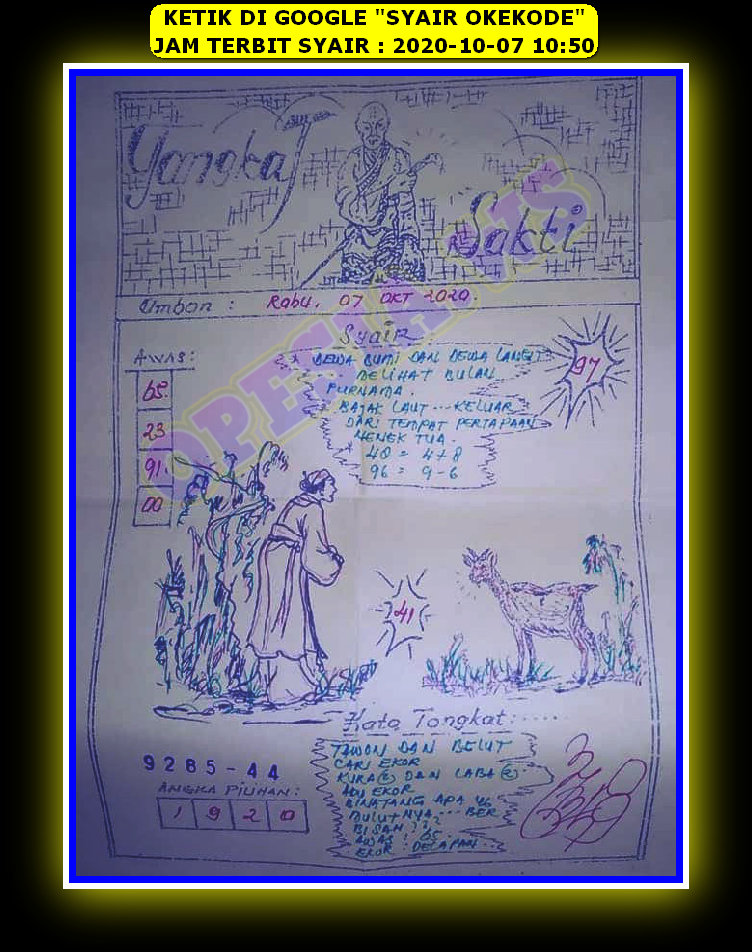 KETIK DI GOOGLE "SYAIR OKEKODE"
JAM TERBIT SYAIR : 2020-10-07 10:50
Tongkat
Sakti
OPESIA.WS
Umbon : Rabu, 07 OKT 2020.
Syair
AWAS:
65
23
91
00
97
DEWA BUMI DAN DEWA LANGIT
MELIHAT BULAN
PURNAMA.
BAJAK LAUT... KELUAR
DARI TEMPAT PERTAPAAN
NENEK TUA.
48 = 4+8
96 = 9-6
41
Kata Tongkat:.....
TAWON DAN BELUT
CARI EKOR
KURA(2) DAN LABA(2)
ADU EKOR
BINATANG APA YG
MULUTNYA... BER
BISAH??
AWAS : 05.
EKOR : DELAPAN..
9285-44
ANGKA PILIHAN:
1 9 2 0